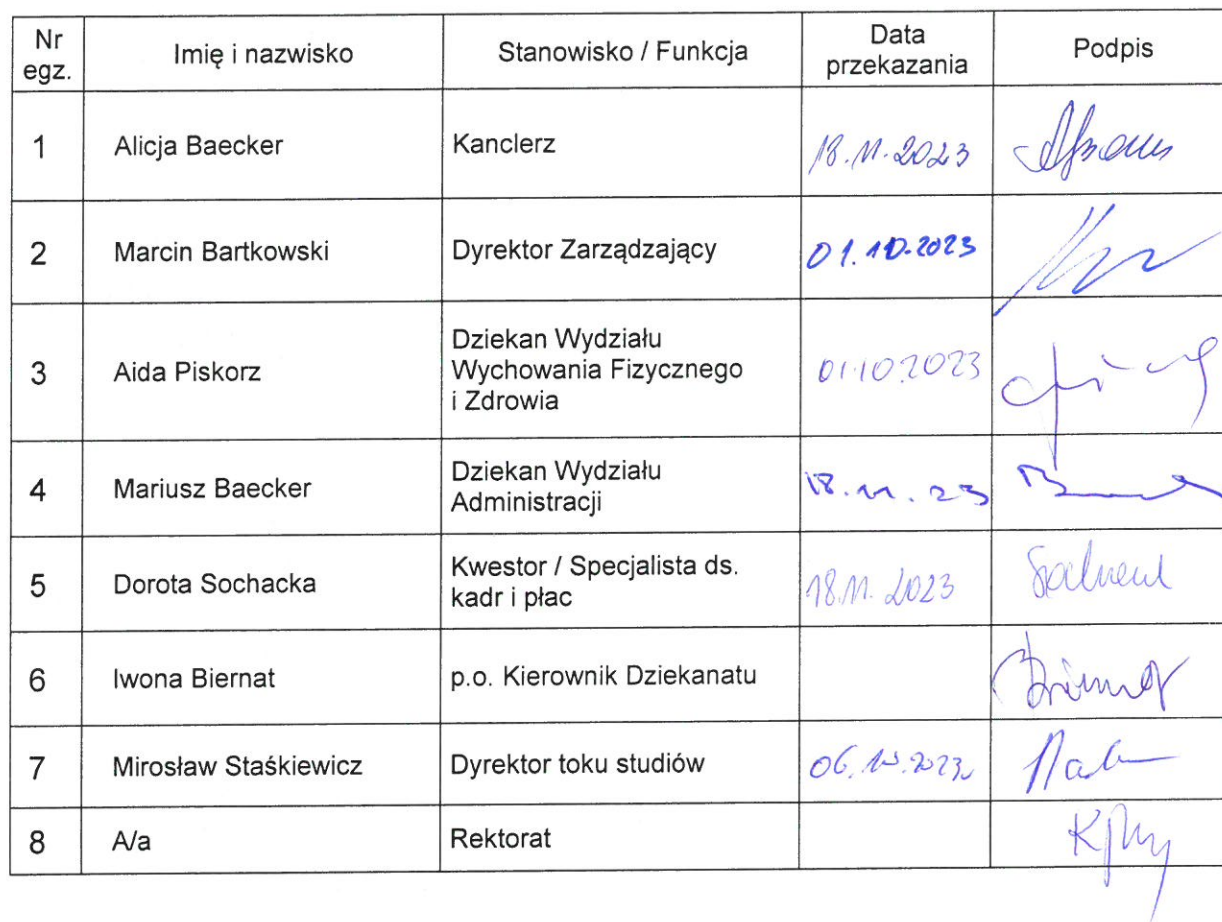 Nr egz. Imię i nazwisko Stanowisko / Funkcja Data przekazania Podpis
1 Alicja Baecker Kanclerz 18.11.2023
2 Marcin Bartkowski Dyrektor Zarządzający 01.10.2023
3 Aida Piskorz Dziekan Wydziału
Wychowania Fizycznego
i Zdrowia 01.10.2023
4 Mariusz Baecker Dziekan Wydziału
Administracji 18.11.23
5 Dorota Sochacka Kwestor / Specjalista ds.
kadr i płac 18.11.2023
6 Iwona Biernat p.o. Kierownik Dziekanatu
7 Mirosław Staśkiewicz Dyrektor toku studiów 06.10.2023
8 A/a Rektorat